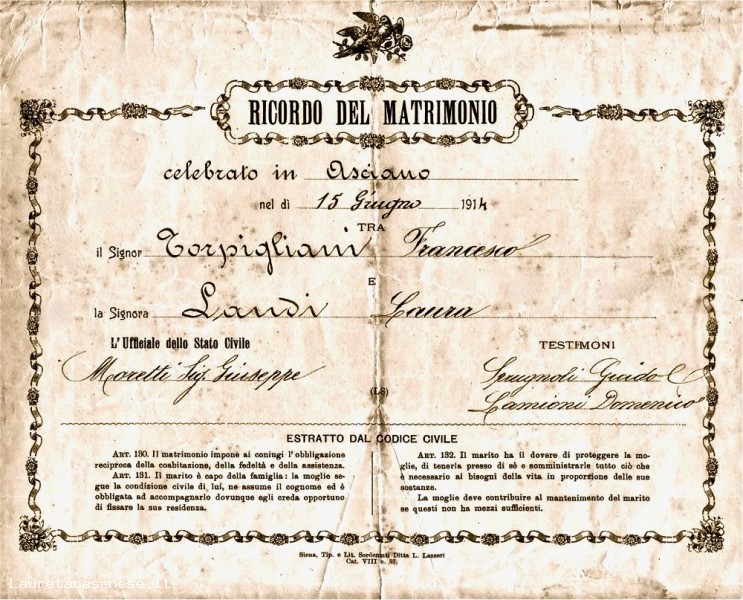 RICORDO DEL MATRIMONIO
celebrato in Asciano
nel dì 15 Giugno 1914
TRA
il Signor Torpigliani Francesco
E
la Signora Landi Laura
L'Ufficiale dello Stato Civile
Moretti Sig. Giuseppe
TESTIMONI
Spugnoli Guido
Lamioni Domenico
(LS)
ESTRATTO DAL CODICE CIVILE
ART. 130. Il matrimonio impone ai coniugi l'obbligazione
reciproca della coabitazione, della fedeltà e della assistenza.
ART. 131. Il marito è capo della famiglia: la moglie se-
gue la condizione civile di lui, ne assume il cognome ed è
obbligata ad accompagnarlo dovunque egli creda opportuno
di fissare la sua residenza.
ART. 132. Il marito ha il dovere di proteggere la mo-
glie, di tenerla presso di sè e somministrarle tutto ciò che
è necessario ai bisogni della vita in proporzione delle sue
sostanze.
La moglie deve contribuire al mantenimento del marito
se questi non ha mezzi sufficienti.
Siena, Tip. e Lit. Sordomuti Ditta L. Lazzeri
Cat. VIII n. 52.
Lauretanasenese.it